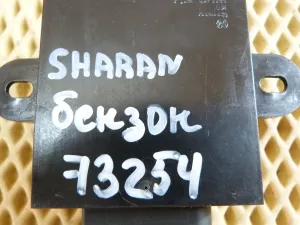 SHARAN
бензок
73254